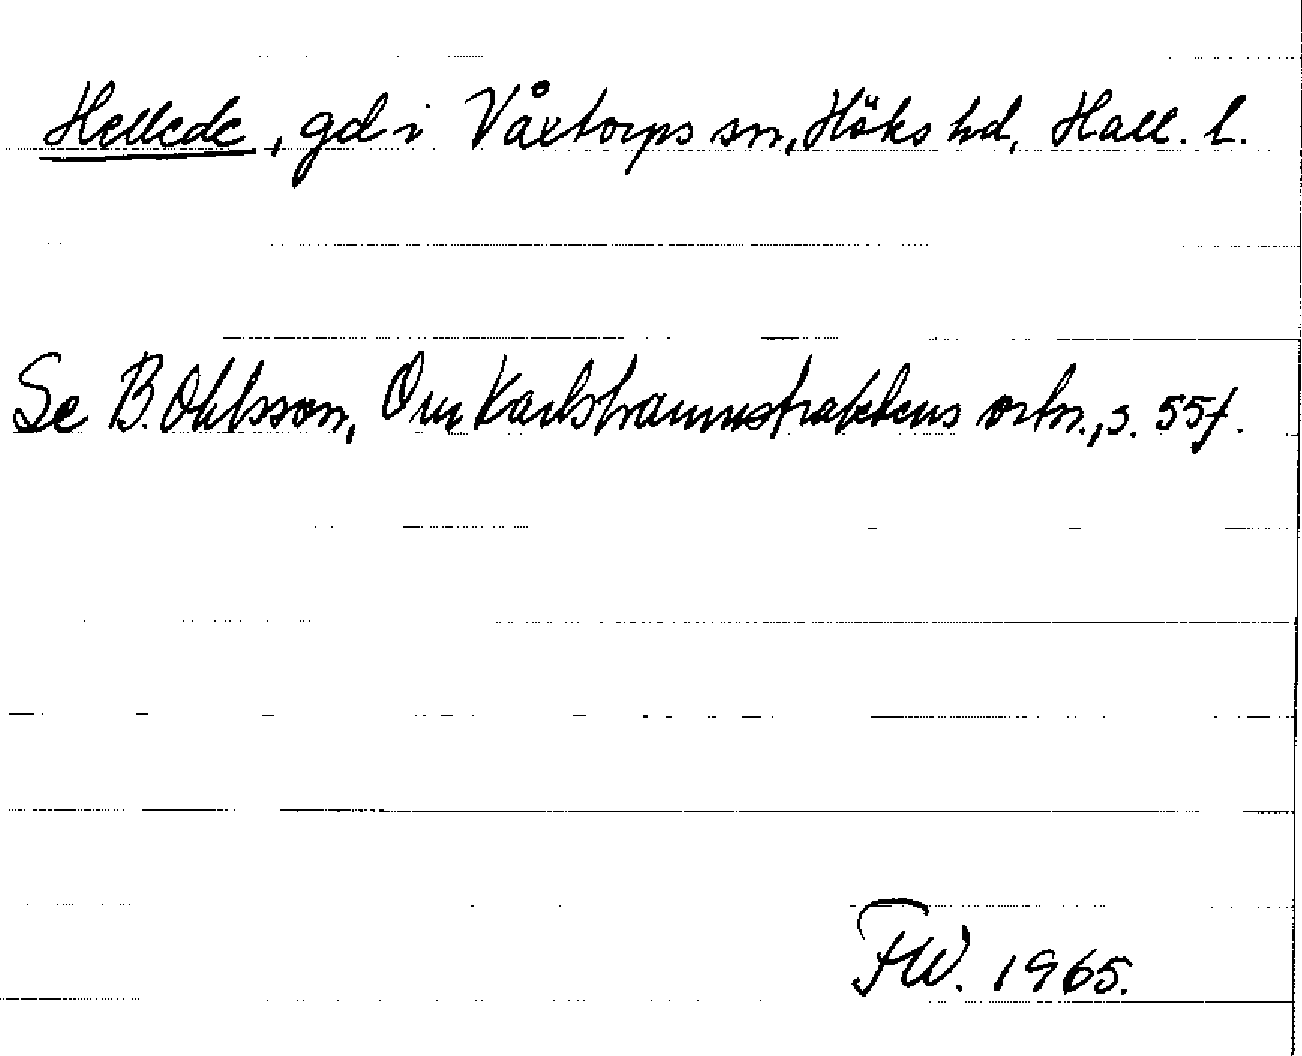 Hellede, gd i Våxtorps sn, Höks hd, Hall. l.
Se B. Ohlsson, Om Karlshamnstraktens ortn., s. 55f.
FW. 1965.